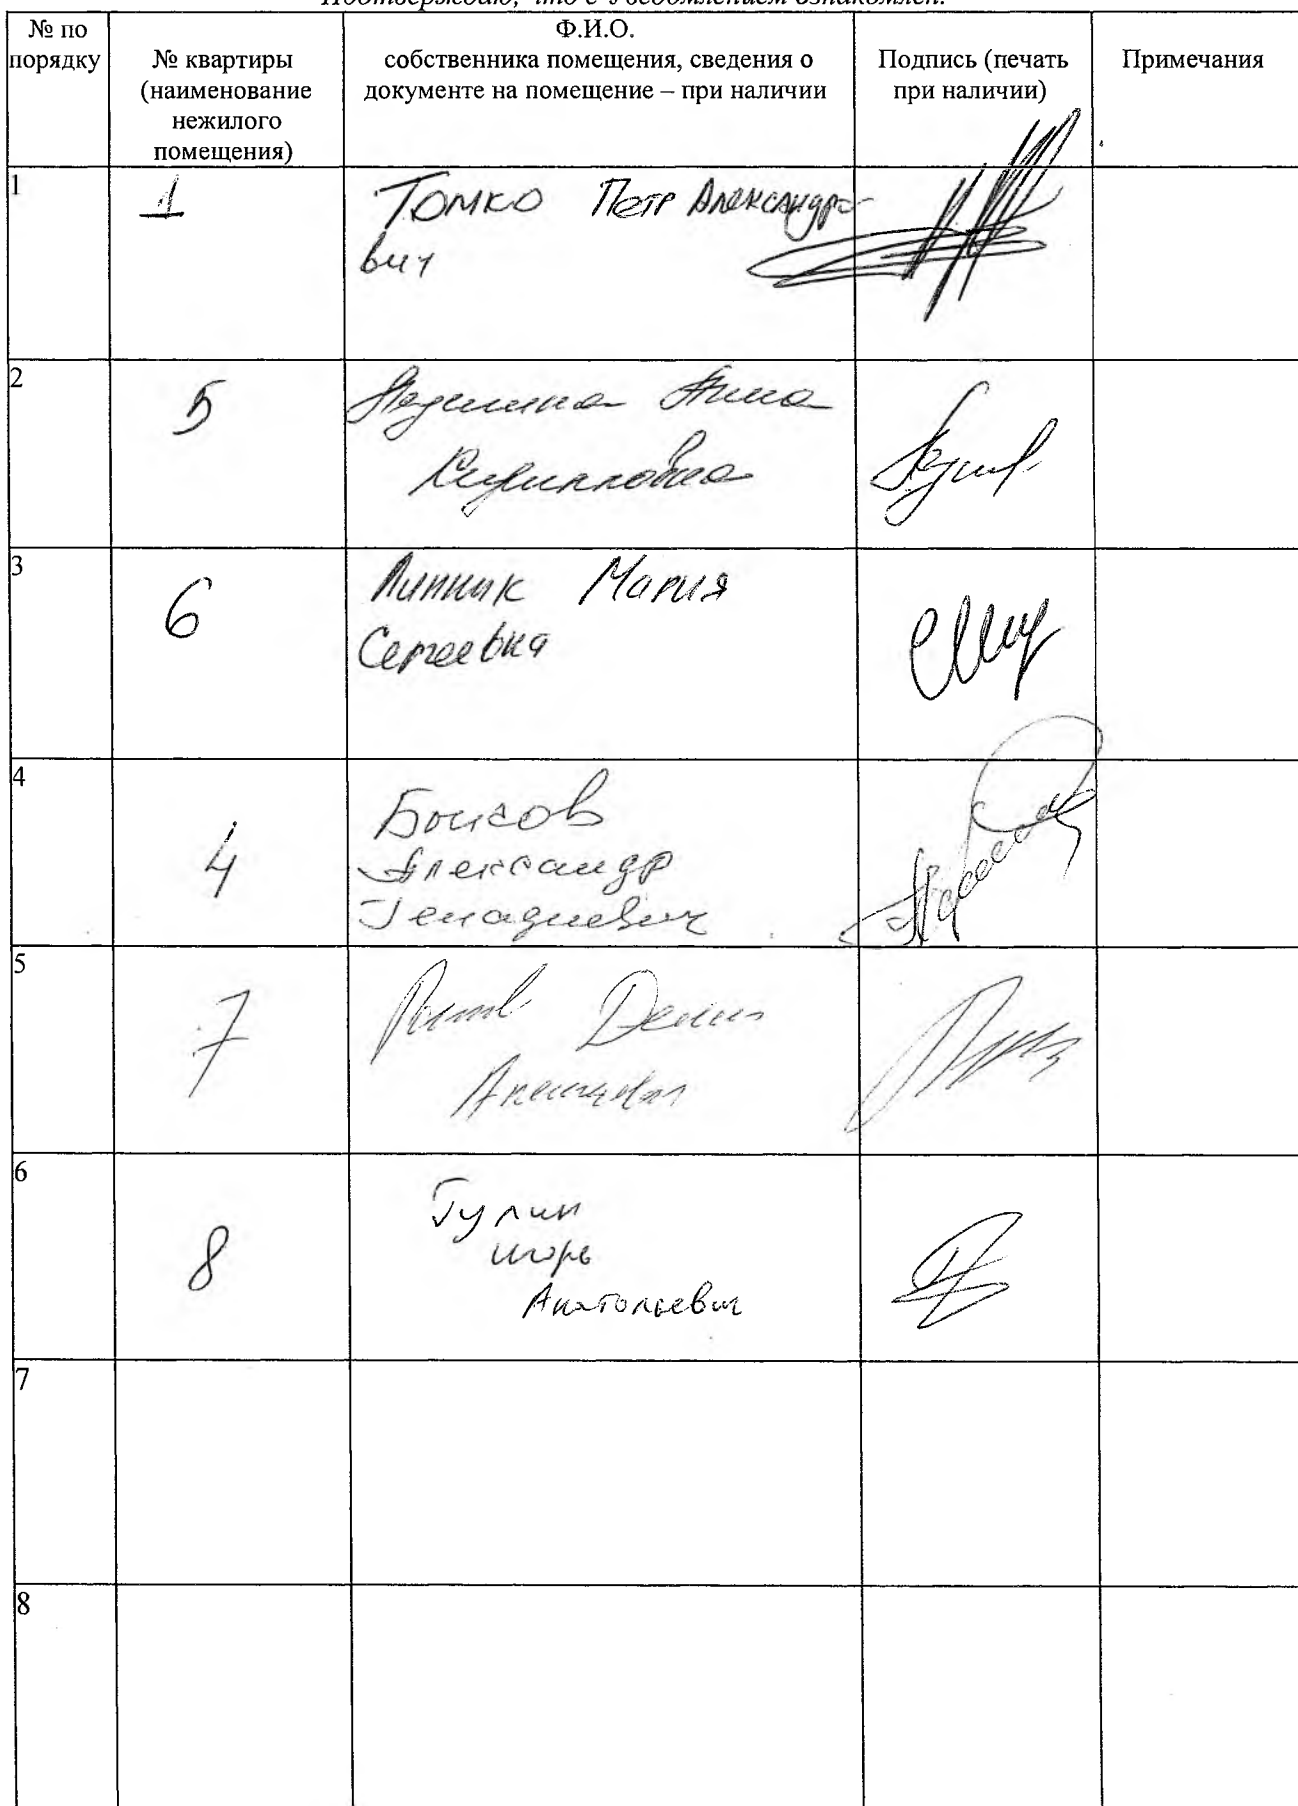 Подтверждаю, что с Уведомлением ознакомлен.
№ по порядку
№ квартиры (наименование нежилого помещения)
Ф.И.О.
собственника помещения, сведения о
документе на помещение – при наличии
Подпись (печать
при наличии)
Примечания
1
1
Томко Петр Александро-
вич
2
5
Анна
Кирилловна
3
6
Линник Мария
Сергеевна
4
4
Александр
Генадиевич
5
7
Денис
6
8
Гулин
Игорь
Анатольевич
7
8